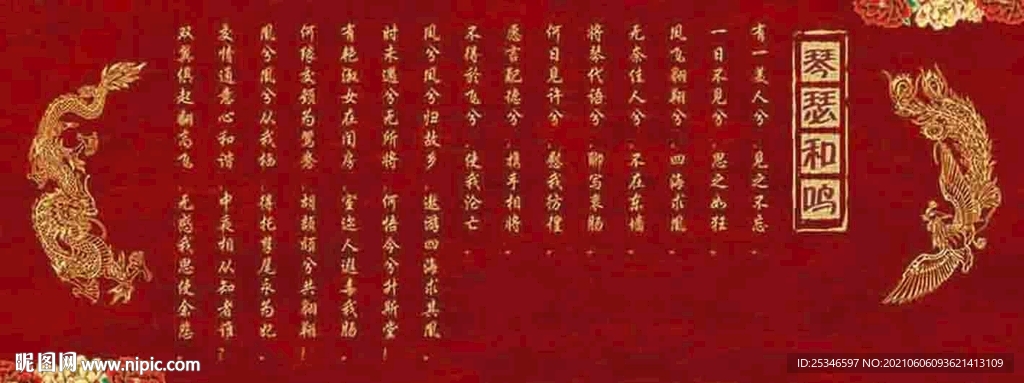 琴瑟和鸣
有一美人兮，见之不忘。
一日不见兮，思之如狂。
凤飞翱翔兮，四海求凰。
无奈佳人兮，不在东墙。
将琴代语兮，聊写衷肠。
何日见许兮，慰我彷徨。
愿言配德兮，携手相将。
不得於飞兮，使我沦亡。
凤兮凤兮归故乡，遨游四海求其凰。
时未遇兮无所将，何悟今兮升斯堂！
有艳淑女在闺房，室迩人遐毒我肠。
何缘交颈为鸳鸯，胡颉颃兮共翱翔！
凰兮凰兮从我栖，得托孳尾永为妃。
交情通意心和谐，中夜相从知者谁？
双翼俱起翻高飞，无感我思使余悲。
昵图网 www.nipic.com
ID:25346597 NO:20210606093621413109